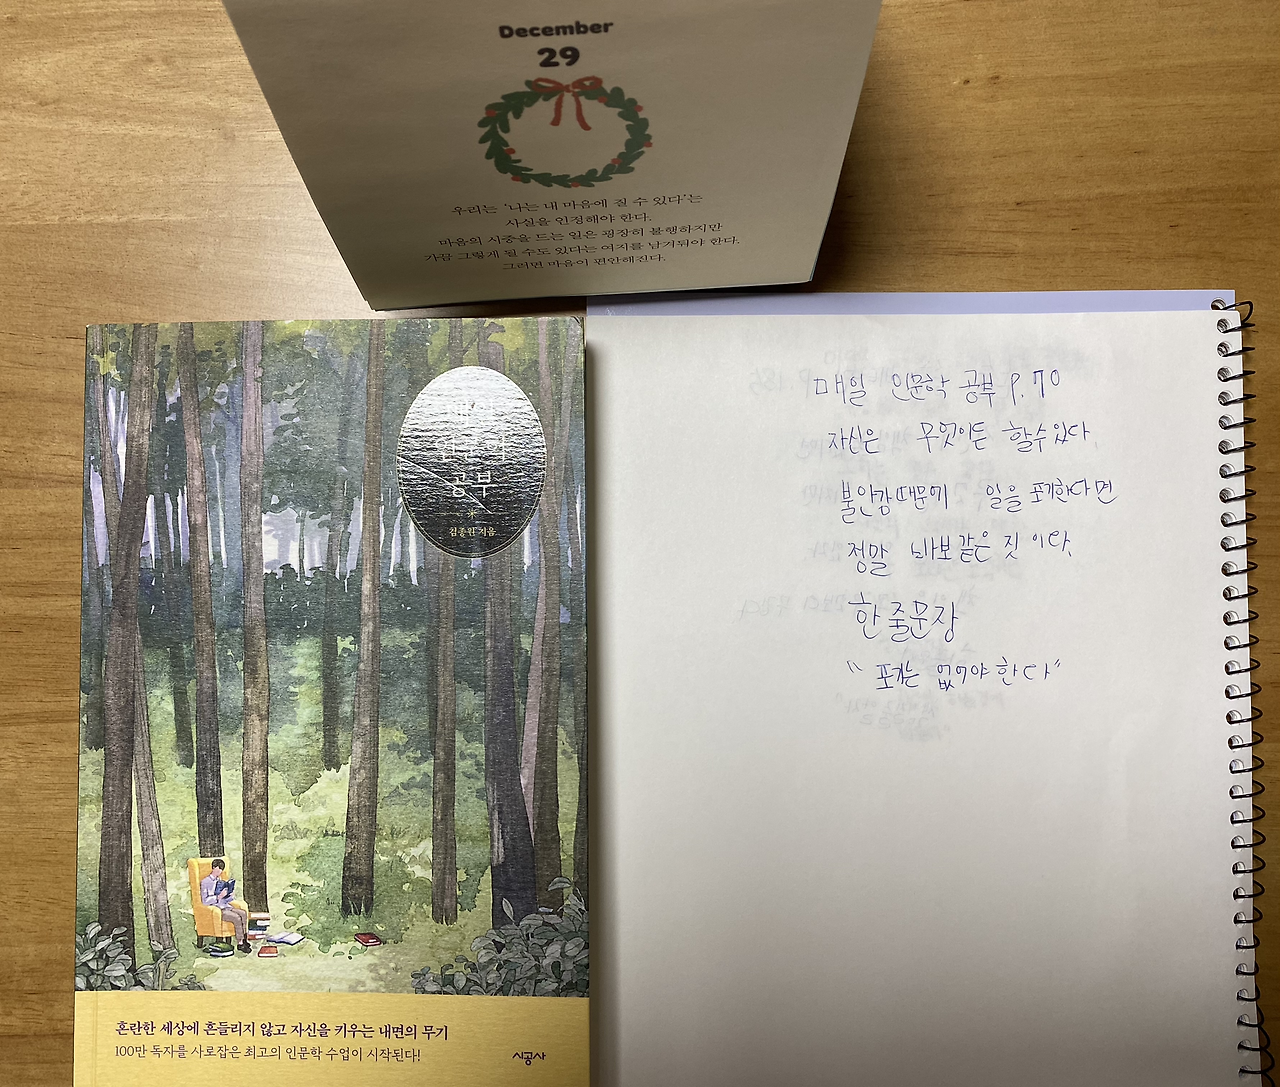 December
29
우리는 '나는 내 마음에 질 수 있다'는
사실을 인정해야 한다.
마음의 시중을 드는 일은 굉장히 불행하지만
가끔 그렇게 될 수도 있다는 여지를 남겨둬야 한다.
그러면 마음이 편안해진다.
공부
김종원 지음
혼란한 세상에 흔들리지 않고 자신을 키우는 내면의 무기
100만 독자를 사로잡은 최고의 인문학 수업이 시작된다!
시공사
매일 인문학 공부 P.70
자신은 무엇이든 할수있다.
불안감때문에 일을 포기한다면
정말 바보같은 짓이다.
한줄문장
"포기는 없어야한다"